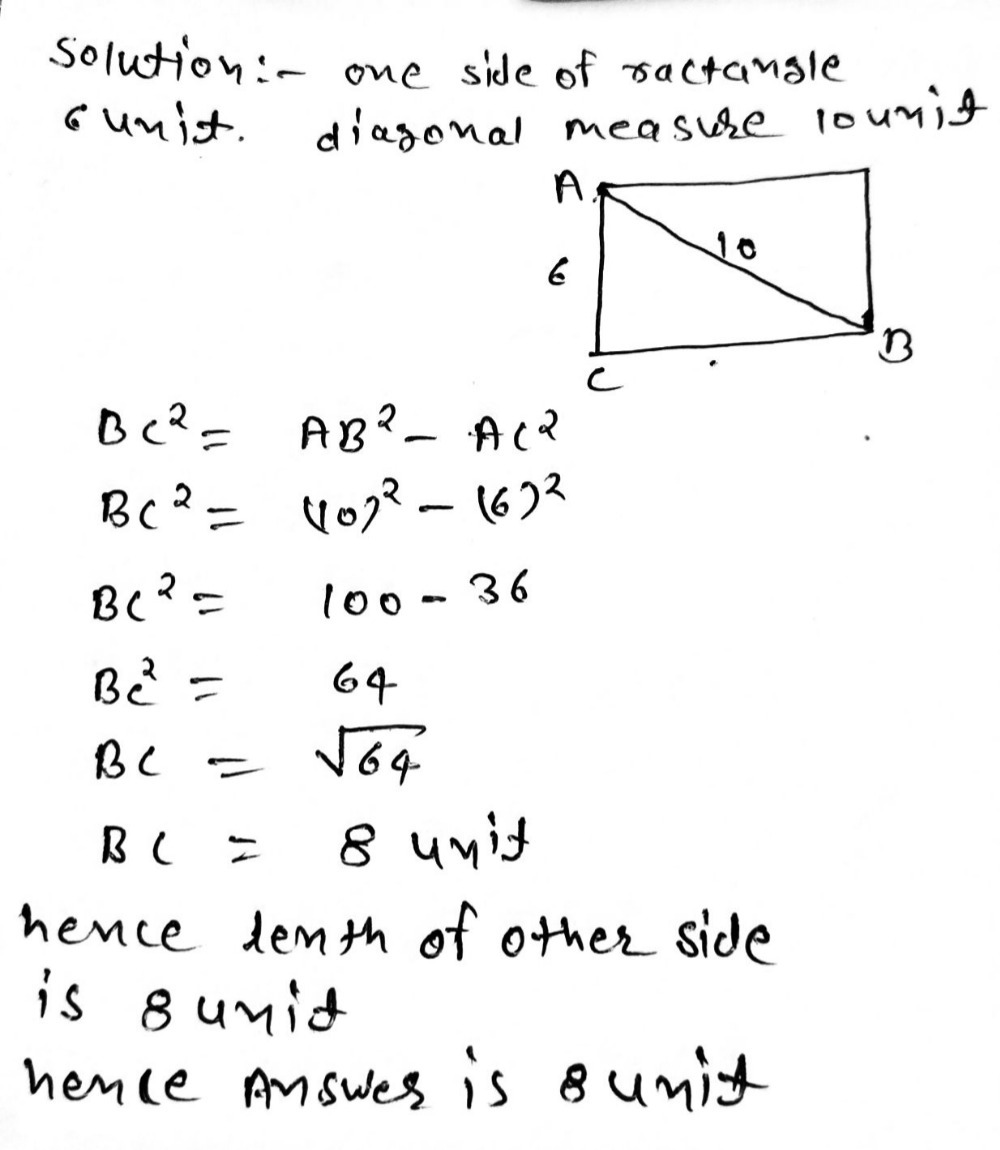 Solution:- one side of ractangle
6 unit. diagonal measure 10 unit
A
10
6
B
C
BC² = AB² - AC²
BC² = (10)² - (6)²
BC² = 100 - 36
BC² = 64
BC = √64
BC = 8 unit
hence lenth of other side
is 8 unit
hence Answer is 8 unit